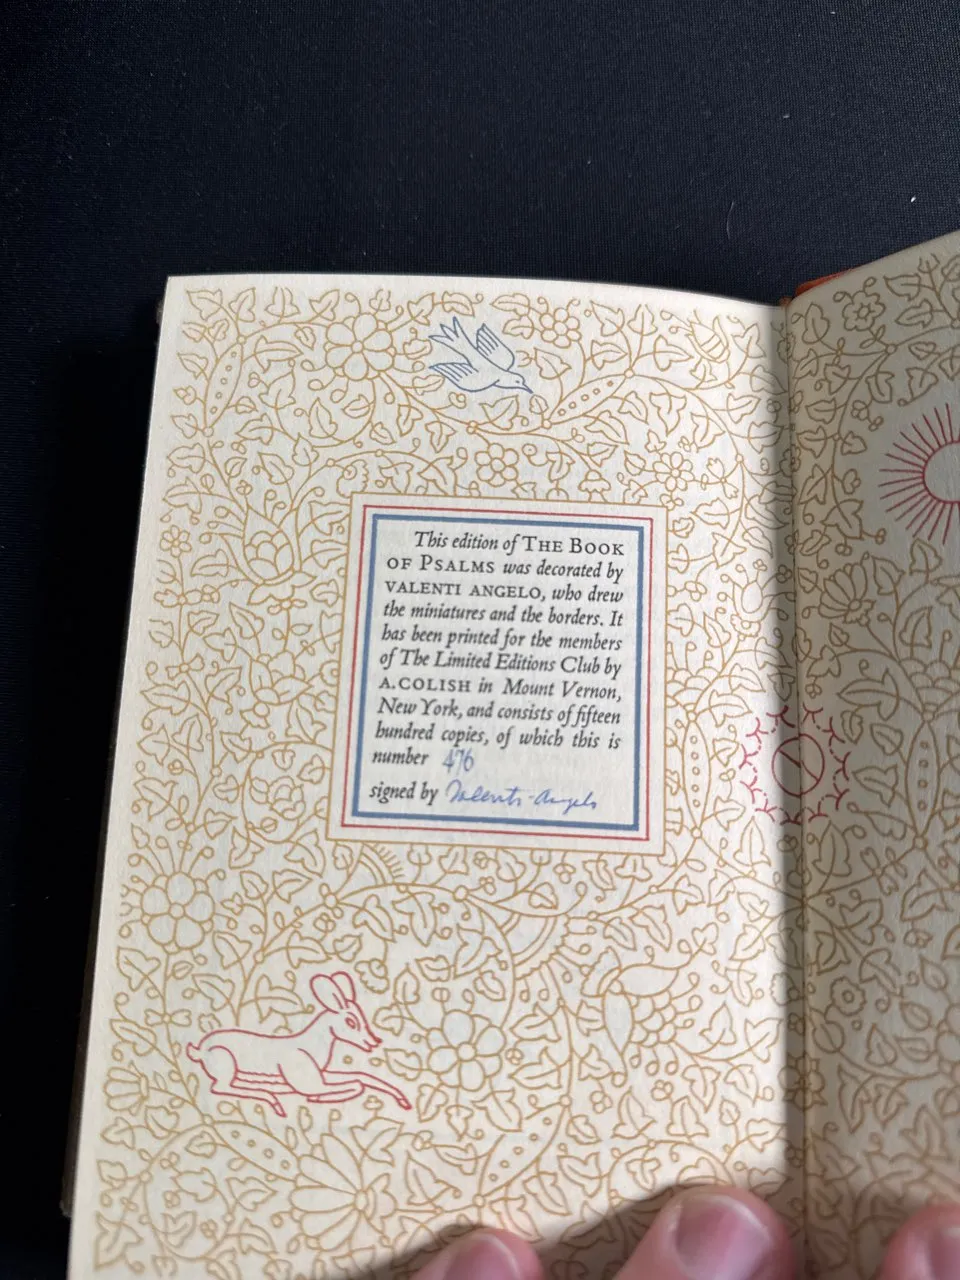 This edition of THE BOOK
OF PSALMS was decorated by
VALENTI ANGELO, who drew
the miniatures and the borders. It
has been printed for the members
of The Limited Editions Club by
A. COLISH in Mount Vernon,
New York, and consists of fifteen
hundred copies, of which this is
number 476
signed by Valenti Angelo